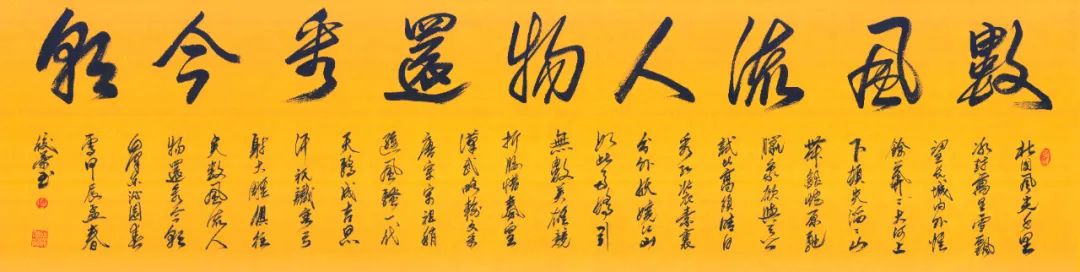 數風流人物還看今朝
北國風光千里
冰封萬里雪飄
望長城內外惟
餘莽〻大河上
下頓失滔〻山
舞銀蛇原馳
蠟象欲與天公
試比高須晴日
看紅裝素裹
分外妖嬈江山
如此多嬌引
無數英雄競
折腰惜秦皇
漢武略輸文采
唐宗宋祖稍
遜風騷一代
天驕成吉思
汗祇識彎弓
射大雕俱往
矣數風流人
物還看今朝
毛澤東沁園春
雪甲辰孟春